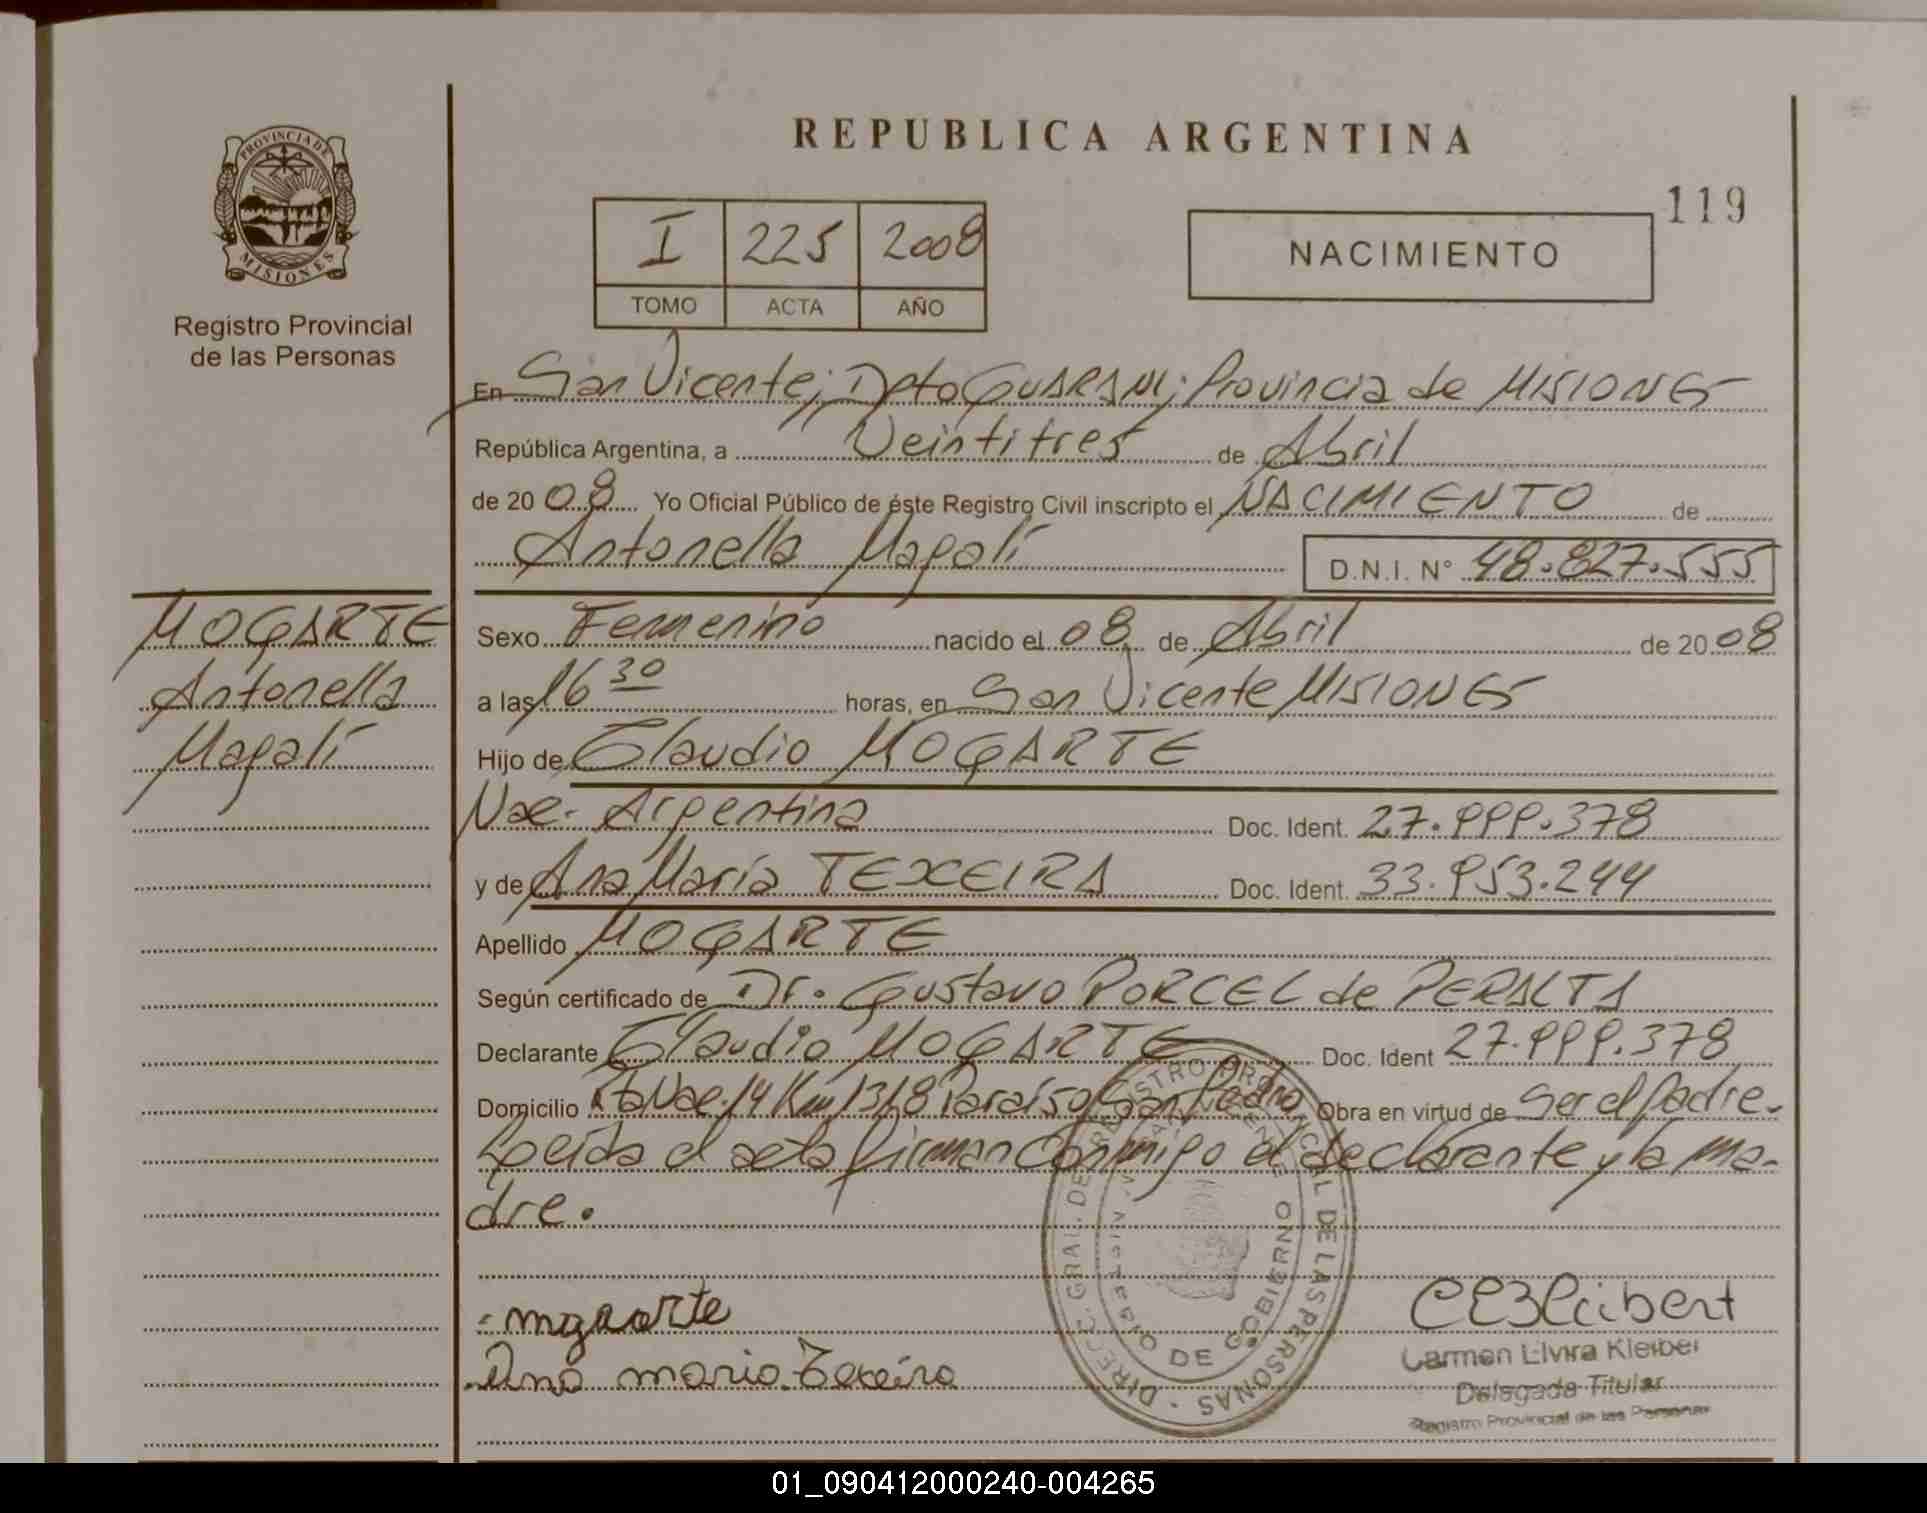 REPUBLICA ARGENTINA
119
PROVINCIA DE
MISIONES
Registro Provincial
de las Personas
I 225 2008
TOMO ACTA AÑO
NACIMIENTO
En San Vicente; Dpto GUARANI; Provincia de MISIONES
República Argentina, a Veintitres de Abril
de 20 08 Yo Oficial Público de éste Registro Civil inscripto el NACIMIENTO de
Antonella Magalí D.N.I. N° 48.827.555
MOGARTE
Antonella
Magalí
Sexo Femenino nacido el 08 de Abril de 20 08
a las 16 30 horas, en San Vicente MISIONES
Hijo de Claudio MOGARTE
Nac. Argentina Doc. Ident. 27.999.378
y de Ana María TEXEIRA Doc. Ident. 33.953.244
Apellido MOGARTE
Según certificado de Dr. Gustavo PORCEL de PERALTA
Declarante Claudio MOGARTE Doc. Ident 27.999.378
Domicilio Rta Nac. 14 Km 1318 Paraíso San Pedro Obra en virtud de Ser el Padre.
Leída el acta firman Conmigo el declarante y la ma-
dre.
DIRECC. GRAL. DE REGISTRO PROVINCIAL DE LAS PERSONAS
DE GOBIERNO
Ana maria
Carmen Elvira Kleiber
Delegada Titular
Registro Provincial de las Personas
01_090412000240-004265